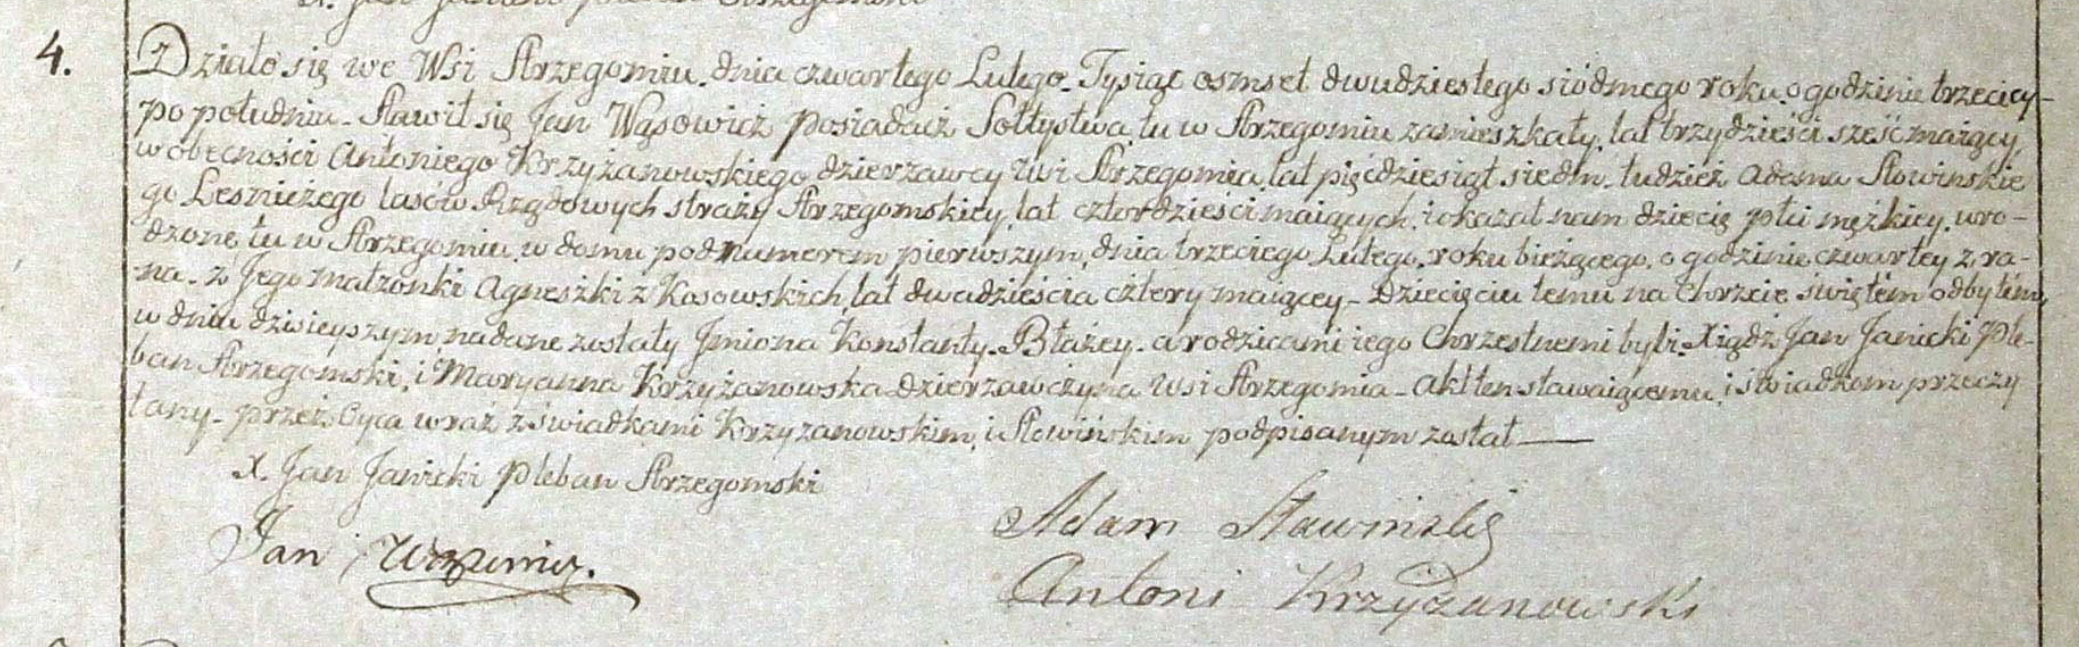 4.
Działo się we Wsi Strzegomiu. dnia czwartego Lutego. Tysiąc osmset dwudziestego siódmego roku. o godzinie trzeciey
po południu. Stawił się Jan Wąsowicz posiadacz Sołtystwa tu w Strzegomiu zamieszkały, lat trzydzieści sześć maiący,
w obecności Antoniego Krzyżanowskiego dzierzawcy Wsi Strzegomia, lat pięćdziesiąt siedm. tudzież Adama Słowinskie
go Lesniczego lasów Rządowych straży Strzegomskiey, lat czterdzieści maiących. i okazał nam dziecię płci męzkiey. uro-
dzone tu w Strzegomiu, w domu pod numerem pierwszym, dnia trzeciego Lutego, roku bieżącego, o godzinie czwartey z ra-
na. z Jego małzonki Agneszki z Kosowskich, lat dwadzieścia cztery maiącey. Dziecięciu temu na Chrzcie świętém odbytém
w dniu dzisieyszym nadane zostały Jmiona Konstanty. Błażey. a rodzicami iego Chrzestnemi byli. Xiądz Jan Janicki Ple-
ban Strzegomski, i Maryanna Krzyżanowska dzierzawczyna Wsi Strzegomia. Akt ten stawaiącemu, i świadkom przeczy
tany. przez Oyca wraz z świadkami Krzyzanowskim, i Słowińskim podpisanym został
X. Jan Janicki Pleban Strzegomski
Adam Sławinski
Jan
Antoni Krzyżanowski